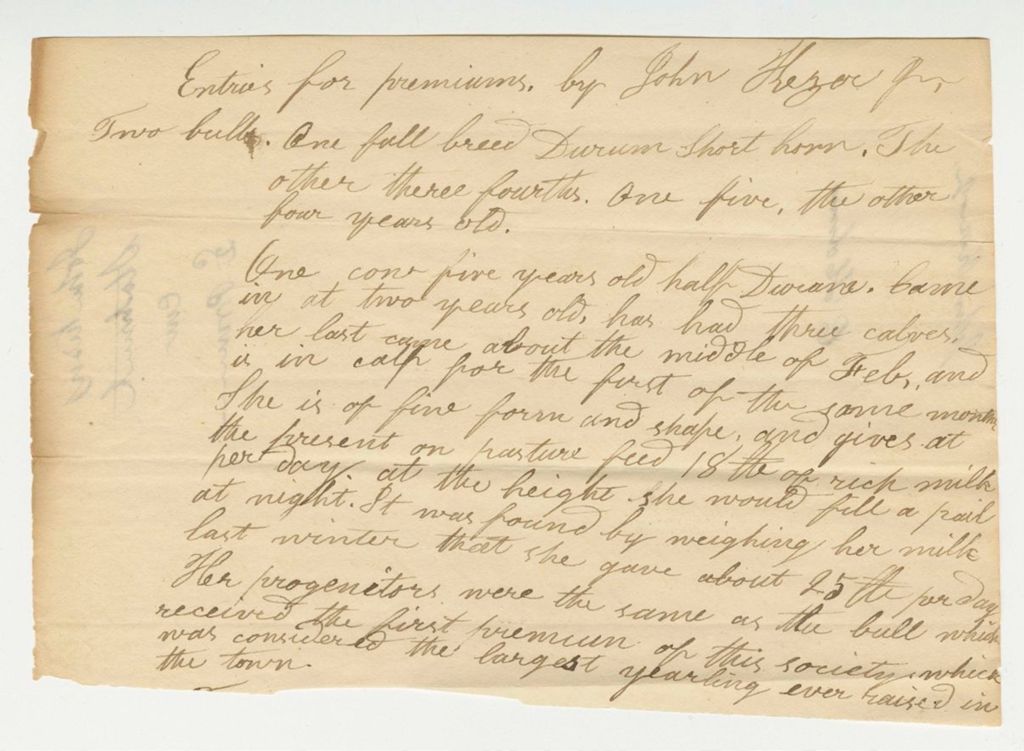 Entries for premiums. by John Jr,
Two bulls. One full breed Durum Short horn. The
other theree fourths. One five, the other
four years old.
One cow five years old half Came
in at two years old, has had three calves.
her last came about the middle of Feb, and
is in calf for the first of the same month
She is of fine form and shape, and gives at
the present on pasture feed 18 lb of rich milk
per day, at the height she would fill a pail
at night. It was found by weighing her milk
last winter that she gave about 25 lb per day
Her progenitors were the same as the bull which
received the first premium of this society, which
was considered the largest yearling ever raised in
the town.